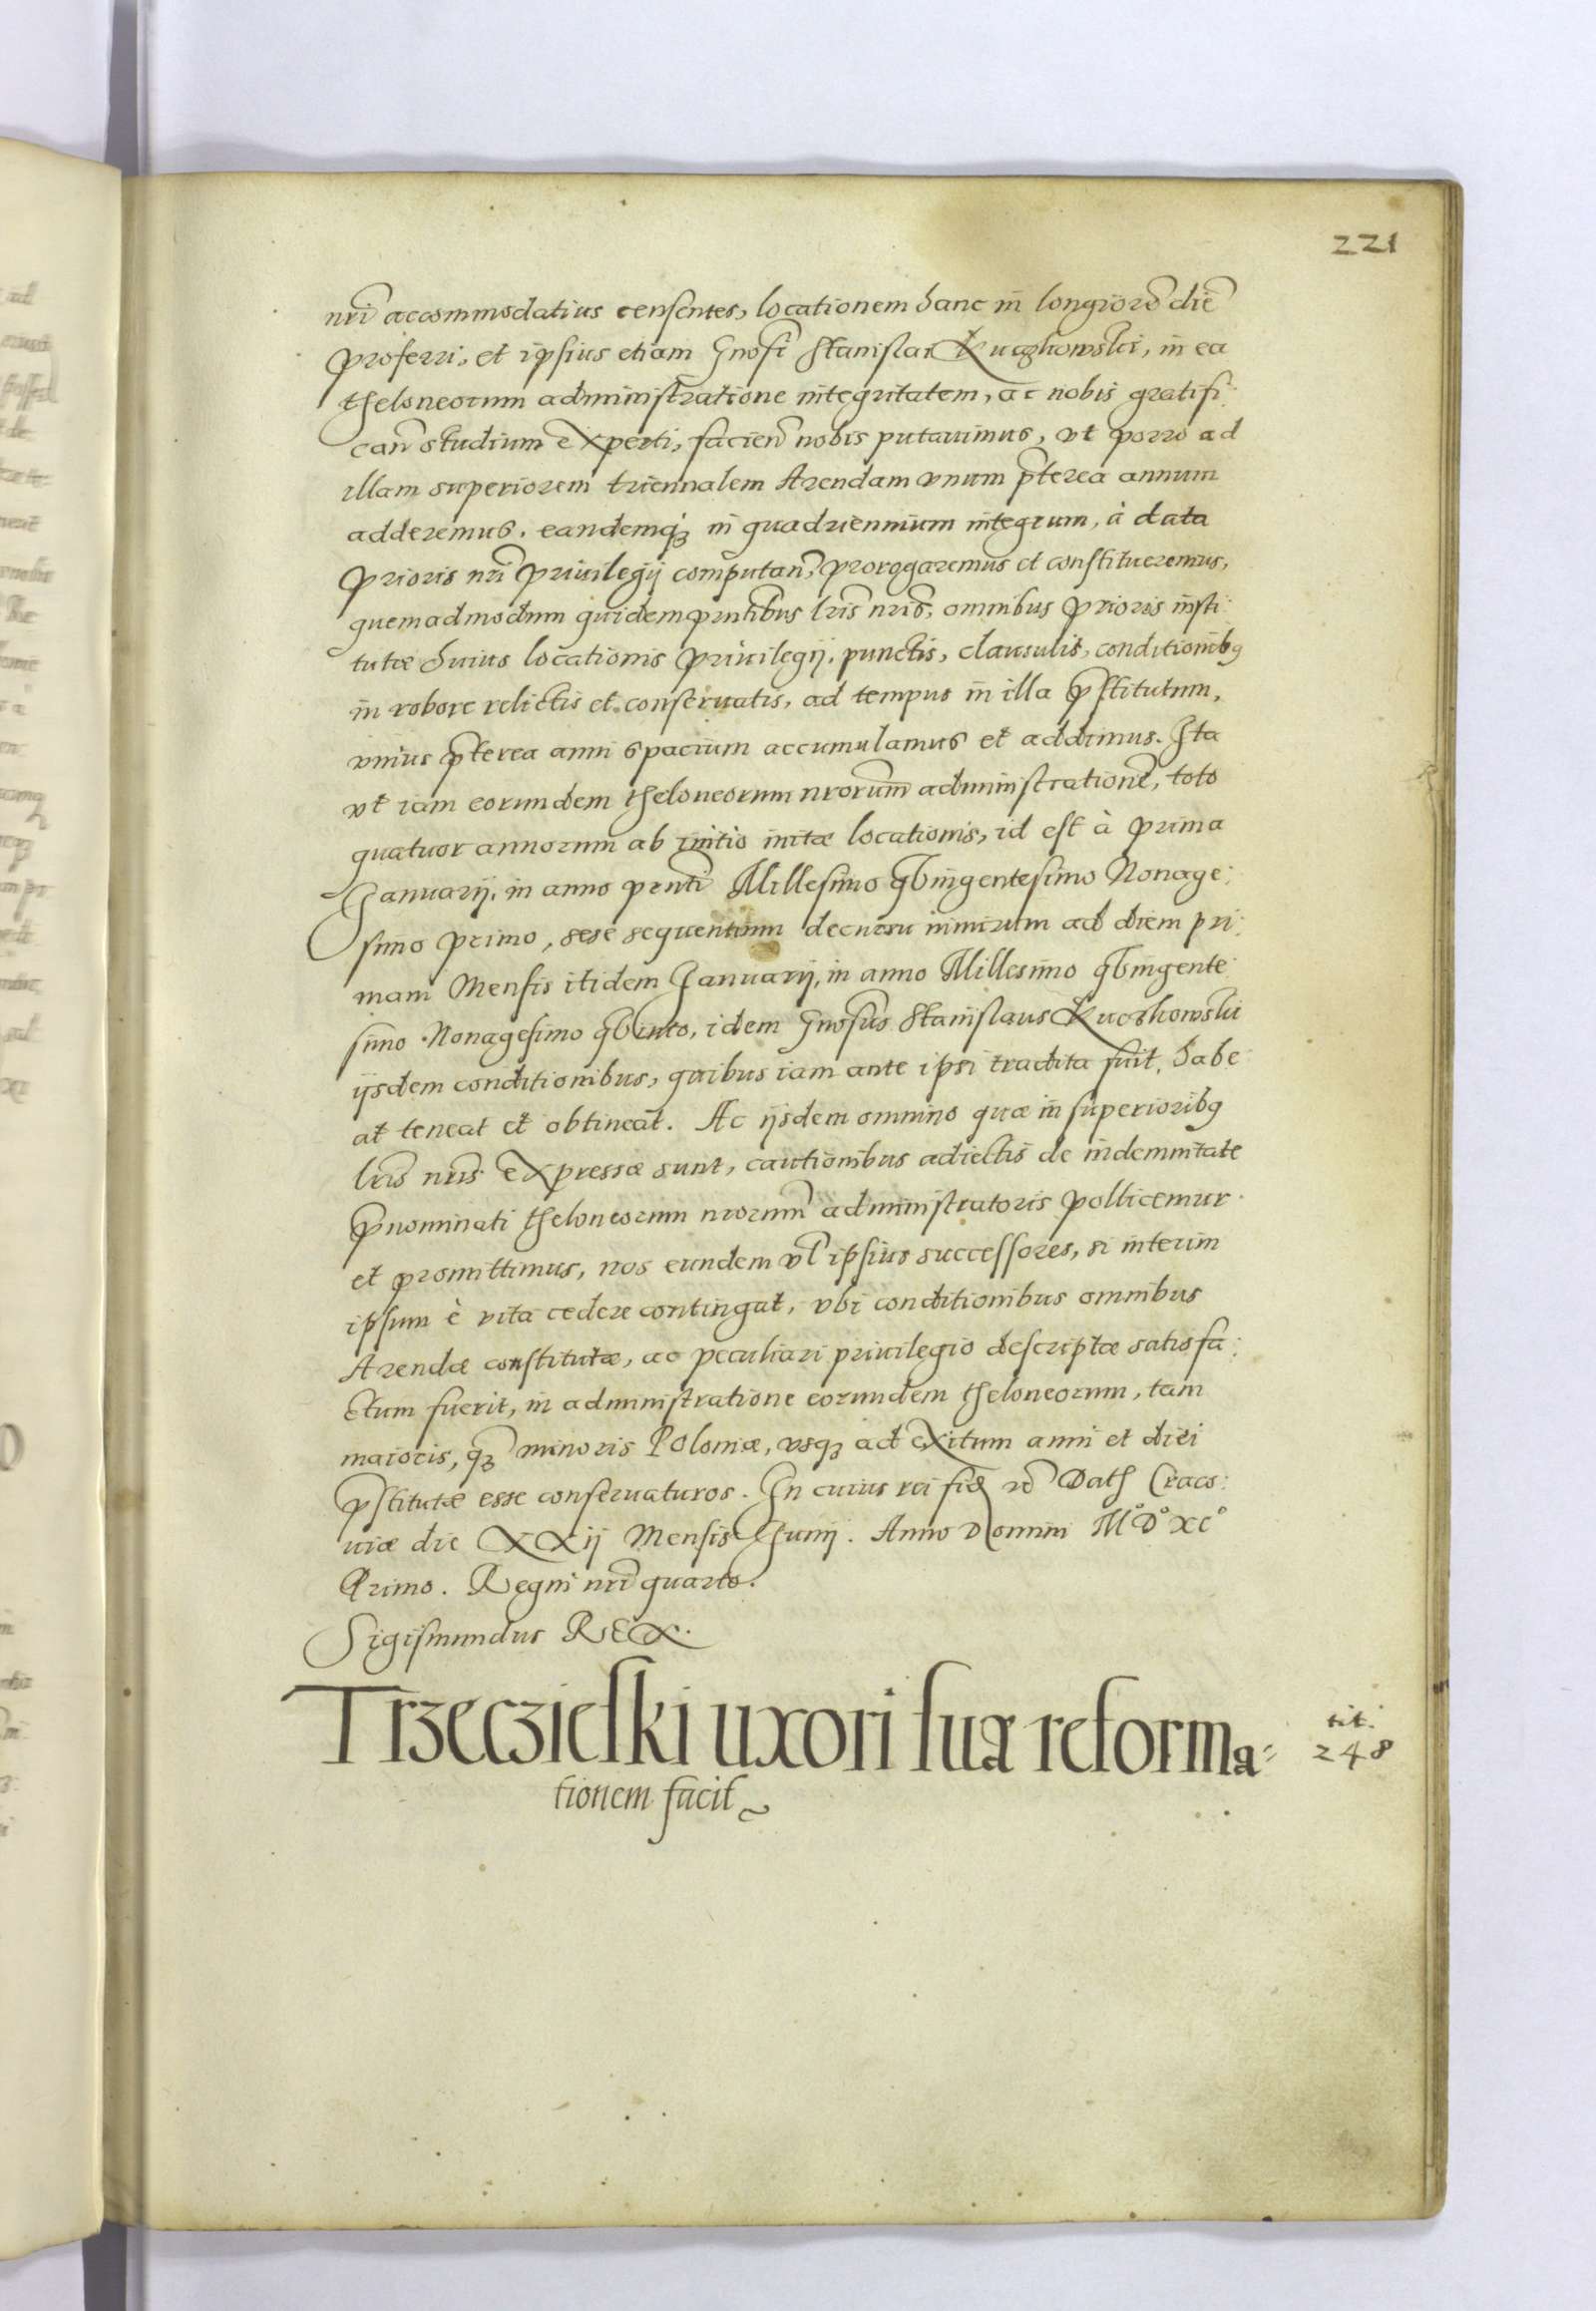 221
nrĩ accommodatius censentes, locationem hanc in longiorẽ diẽ
proferri, et ipsius etiam Gnosi Stanislai Kuczkowski, in ea
theloneorum administratione integritatem, ac nobis gratifi:
cañ studium experti, facień nobis putauimus, vt porro ad
illam superiorem triennalem Arendam vnum p̃terea annum
adderemus. eandemq́ꝫ in quadriennium integrum, à data
Prioris nrĩ Priuilegij computañ, prorogaremus et constitueremus,
quemadmodum quidem pñtibus lrĩs nrĩs, omnibus Prioris insti:
tutæ huius locationis Priuilegij, punctis, clausulis, conditionibꝯ
in robore relictis et conseruatis, ad tempus in illa p̃stitutum,
vnius p̃terea anni spacium accumulamus et addimus. Ita
vt iam eorundem theloneorum nrorum̃ administrationẽ, toto
quatuor annorum ab initio initæ locationis, id est à prima
Januarij, in anno pñti Millesimo q̃ingentesimo Nonage:
simo primo, sese sequentium decursu nimirum ad diem pri:
mam Mensis itidem Januarij, in anno Millesimo q̃ingente:
simo Nonagesimo q̃into, idem Gnosus Stanislaus Kuczkowski
ijsdem conditionibus, quibus iam ante ipsi tradita fuit, habe:
at teneat et obtineat. Ac ijsdem omnino quæ in superioribꝯ
lrĩs nrĩs expressæ sunt, cautionibus adiectis de indemnitate
p̃nominati theloneorum nrorum̃ administratoris pollicemur
et promittimus, nos eundem vl̃ ipsius successores, si interim
ipsum è vita cedere contingat, vbi conditionibus omnibus
Arendæ constitutæ, ac peculiari priuilegio descriptæ satisfa:
ctum fuerit, in administratione eorundem theloneorum, tam
maioris, q̃ꝫ minoris Poloniæ, vsqꝫ ad exitum anni et diei
p̃stitutæ esse conseruaturos. In cuius rei fid̃ rẽ Dath Craco:
uiæ die XXij Mensis Junij. Anno Domini M° D° XC°
Primo. Regni nrĩ quarto.
Sigismundus REX.
Trzeczielki uxori suæ reforma:
tionem facit
tit.
248